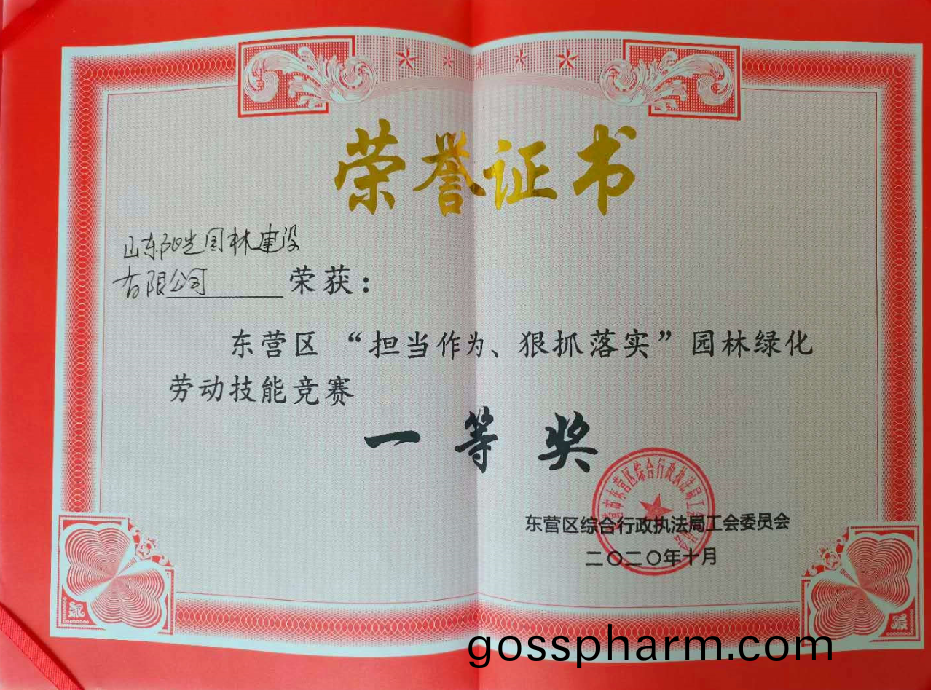 荣誉证书
山东阳光园林建设
有限公司 荣获：
东营区“担当作为、狠抓落实”园林绿化
劳动技能竞赛
一等奖
东营区综合行政执法局工会委员会
二〇二〇年十月
gosspharm.com